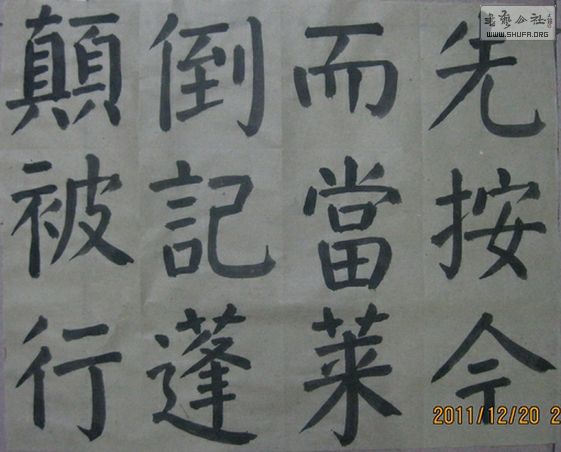 先按今
而當莱
倒記蓬
顛被行
書藝公社
WWW.SHUFA.ORG
2011/12/20 2